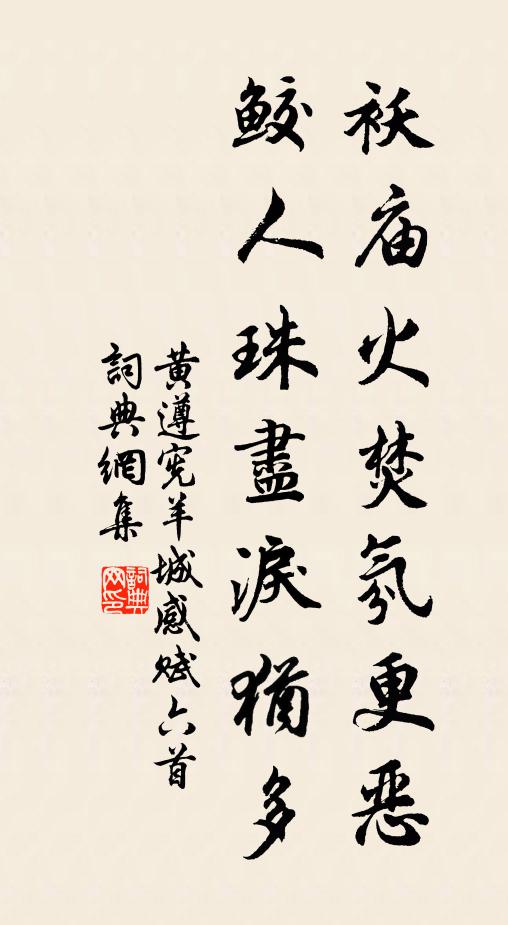 祆庙火焚氛更恶
鮫人珠盡淚猶多
黃遵宪羊城感赋六首
詞典網集
詞典网印